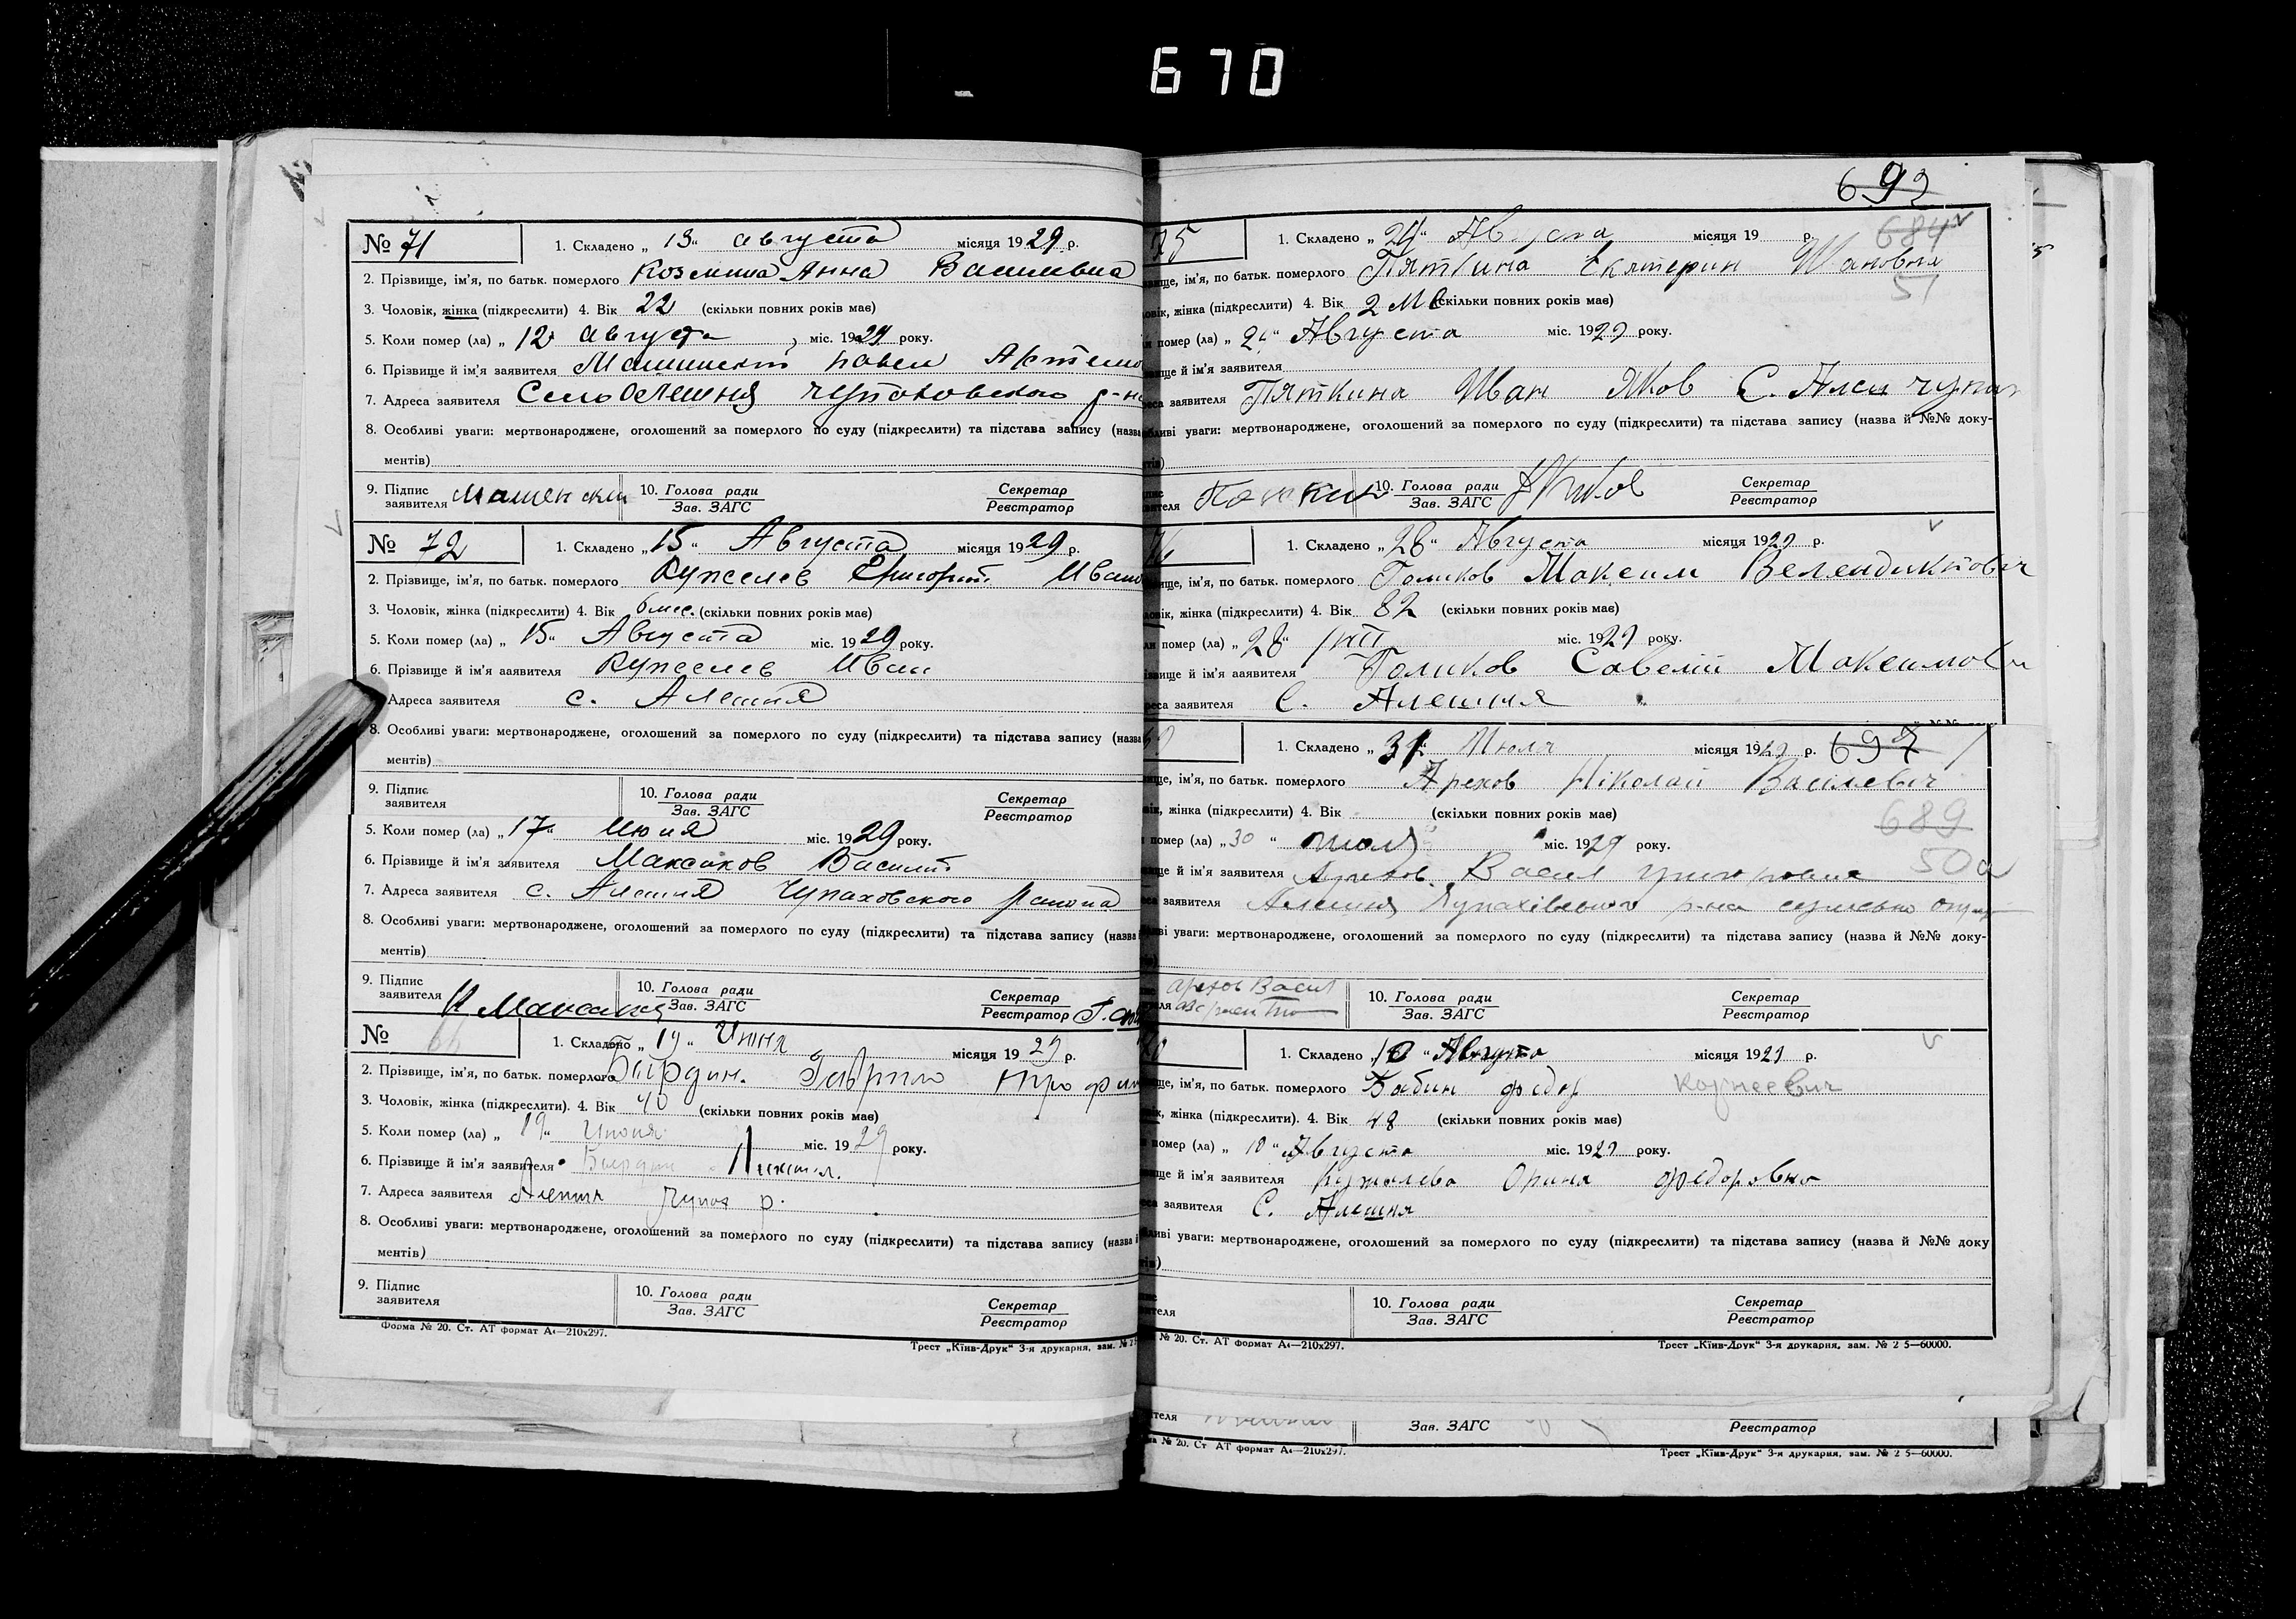 670
№ 71 1. Складено „ 13 “ августа місяця 1929 р.
2. Прізвище, ім'я, по батьк. померлого Козмина Анна Васильевна
3. Чоловік, жінка (підкреслити) 4. Вік 22 (скільки повних років має)
5. Коли помер (ла) „ 12 августа міс. 1929 року.
6. Прізвище й ім'я заявителя Павел
7. Адреса заявителя Село Олешня Чупаховского р-на
8. Особливі уваги: мертвонароджене, оголошений за померлого по суду (підкреслити) та підстава запису (назва
ментів)
9. Підпис заявителя 10. Голова ради Зав. ЗАГС Секретар Реєстратор
№ 72 1. Складено „ 15 “ Августа місяця 1929 р.
2. Прізвище, ім'я, по батьк. померлого Григорий
3. Чоловік, жінка (підкреслити) 4. Вік 6 мес. (скільки повних років має)
5. Коли помер (ла) „ 15 “ Августа міс. 1929 року.
6. Прізвище й ім'я заявителя Иван
Адреса заявителя с. Алешня
8. Особливі уваги: мертвонароджене, оголошений за померлого по суду (підкреслити) та підстава запису (назва
ментів)
9. Підпис заявителя 10. Голова ради Зав. ЗАГС Секретар Реєстратор
5. Коли помер (ла) „ 17 “ Июня міс. 1929 року.
6. Прізвище й ім'я заявителя Максаков Василий
7. Адреса заявителя с. Алешня Чупаховского района
8. Особливі уваги: мертвонароджене, оголошений за померлого по суду (підкреслити) та підстава запису (назва
ментів)
9. Підпис заявителя 10. Голова ради Зав. ЗАГС Секретар Реєстратор
№ 1. Складено „ 19 “ Июня місяця 1929 р.
2. Прізвище, ім'я, по батьк. померлого Гаврило
3. Чоловік, жінка (підкреслити). 4. Вік 40 (скільки повних років має)
5. Коли помер (ла) „ 19 “ Июня міс. 1929 року.
6. Прізвище й ім'я заявителя
7. Адреса заявителя Алешня Чупах р.
8. Особливі уваги: мертвонароджене, оголошений за померлого по суду (підкреслити) та підстава запису (назва
ментів)
9. Підпис заявителя 10. Голова ради Зав. ЗАГС Секретар Реєстратор
Форма № 20. Ст. АТ формат А4—210х297.
Трест „Київ-Друк“ 3-я друкарня, зам. №
692
684
51
75 1. Складено „ 24 “ Августа місяця 19 р.
ім'я, по батьк. померлого Пяткина Екятерин Ивановня
жінка (підкреслити) 4. Вік 2 МЕ (скільки повних років має)
помер (ла) „ 24 “ Августа міс. 1929 року.
й ім'я заявителя
заявителя Пяткина Иван Яков С. Алеш
уваги: мертвонароджене, оголошений за померлого по суду (підкреслити) та підстава запису (назва й №№ доку-
10. Голова ради Зав. ЗАГС Секретар Реєстратор
76 1. Складено „ 28 “ Августа місяця 1929 р.
ім'я, по батьк. померлого Голиков Максим
жінка (підкреслити) 4. Вік 82 (скільки повних років має)
помер (ла) „ 28 “ міс. 1929 року.
й ім'я заявителя Голиков Савелий Максимович
заявителя С. Алешня
697
1. Складено „ 31 “ Июля місяця 1929 р.
ім'я, по батьк. померлого Арехов Николай Василевич
жінка (підкреслити) 4. Вік (скільки повних років має)
689
помер (ла) „ 30 “ июля міс. 1929 року.
50а
й ім'я заявителя Арехов Васил
заявителя Алешня Чупахівського р-на
уваги: мертвонароджене, оголошений за померлого по суду (підкреслити) та підстава запису (назва й №№ доку-
Арехов Васил
10. Голова ради Зав. ЗАГС Секретар Реєстратор
1. Складено „ 10 “ Августа місяця 1929 р.
ім'я, по батьк. померлого Бабин Федор Корнеевич
жінка (підкреслити). 4. Вік 48 (скільки повних років має)
помер (ла) „ 10 “ Августа міс. 1929 року.
й ім'я заявителя Орина Федоровна
заявителя С. Алешня
уваги: мертвонароджене, оголошений за померлого по суду (підкреслити) та підстава запису (назва й №№ доку
10. Голова ради Зав. ЗАГС Секретар Реєстратор
№ 20. Ст. АТ формат А4—210х297.
Трест „Київ-Друк“ 3-я друкарня, зам. № 2 5—60000.
Зав. ЗАГС Реєстратор
№ 20. Ст АТ формат А4—210х297.
Трест „Київ-Друк“ 3-я друкарня, зам. № 2 5—60000.